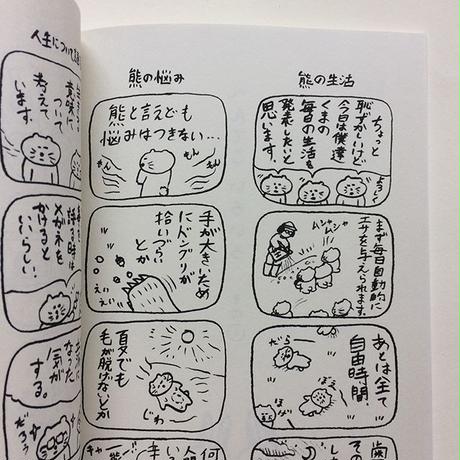 熊の生活
ちょっと
恥ずかしいけど
今日は僕達
くまの
毎日の生活を
発表したいと
思います。
まず毎日自動的に
エサを与えられます。
ムシャ
ムシャ
あとは全て
自由時間。
だら
ぼえ
歯
その
熊の悩み
熊と言えども
悩みはつきない…
もん
もん
手が大きいため
にドングリが
拾いづらいとか
夏でも
毛が脱げないとか
じわ
何
人間
人生について
意味に
ついて
考えて
います。
語る時は
メガネを
かけると
いいらしい。
なった
気が
する。